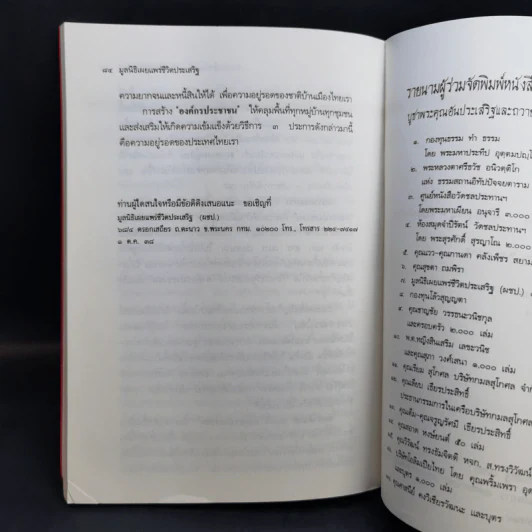 ๘๔ มูลนิธิเผยแพร่ชีวิตประเสริฐ
ความยากจนและหนี้สินให้ได้ เพื่อความอยู่รอดของชาติบ้านเมืองไทยเรา
การสร้าง "องค์กรประชาชน" ให้คลุมพื้นที่ทุกหมู่บ้านทุกชุมชน
และส่งเสริมให้เกิดความเข้มแข็งด้วยวิธีการ ๓ ประการดังกล่าวมานี้
คือความอยู่รอดของประเทศไทยเรา
ท่านผู้ใดสนใจหรือมีข้อติติงเสนอแนะ ขอเชิญที่
มูลนิธิเผยแพร่ชีวิตประเสริฐ (ผชป.)
ตรอกเสถียร ถ.ตะนาว ข.พระนคร กทม. ๑๐๒๐๐ โทร., โทรสาร
๑ ต.ค. ๓๘
รายนามผู้ร่วมจัดพิมพ์หนังสื
บูชาพระคุณอันประเสริฐและถวาย
๑. กองทุนธรรม ทำ ธรรม
โดย พระมหาประทีป อุตตมปญฺโ
๒. พระหลวงตาศรีธวัช อนิวตฺติโก
แห่ง ธรรมสถานอิทัปปัจจยตาราม
๓. ศูนย์หนังสือวัดชลประทานฯ
โดยพระมหาเผียน อนุจารี ๓,๐๐๐
๔. ห้องสมุดจำปีรัตน์ วัดชลประทานฯ
โดย พระสุรศักดิ์ สุรญาโณ ๒,๐๐๐
๕. คุณแวว-คุณกานดา คลังเพ็ชร สยาม
๖. คุณสุชดา ถมพิรา
๗. มูลนิธิเผยแพร่ชีวิตประเสริฐ (ผชป.)
๘ กองทุนโล้วสุญญตา
๙. คุณชาญชัย วรรธนะวนิชกุล
และครอบครัว ๒,๐๐๐ เล่ม
๑๐. พ.ต.หญิงสินเสริม เลขะวนิช
และคุณสุภา วงศ์เสนา ๑,๐๐๐ เล่ม
คุณเรียม สุโกศล บริษัทกมลสุโกศล จำก
คุณเลียบ เธียรประสิทธิ์
ประธานกรรมการในเครือบริษัทกมลสุโกศล
คุณเต็ม-คุณจรูญรัศมี เธียรประสิทธิ์
คุณสอาด หงษ์ยนต์ ๕๐ เล่ม
คุณวิวัฒน์ ทรงธัมจิตติ หจก. ส.ทรงวิวัฒน์
บริษัทโอลิมเปียไทย โดย คุณพริ้มเพรา
และบุตร ๑,๐๐๐ เล่ม
คงวิเชียรวัฒนะ และบุตร